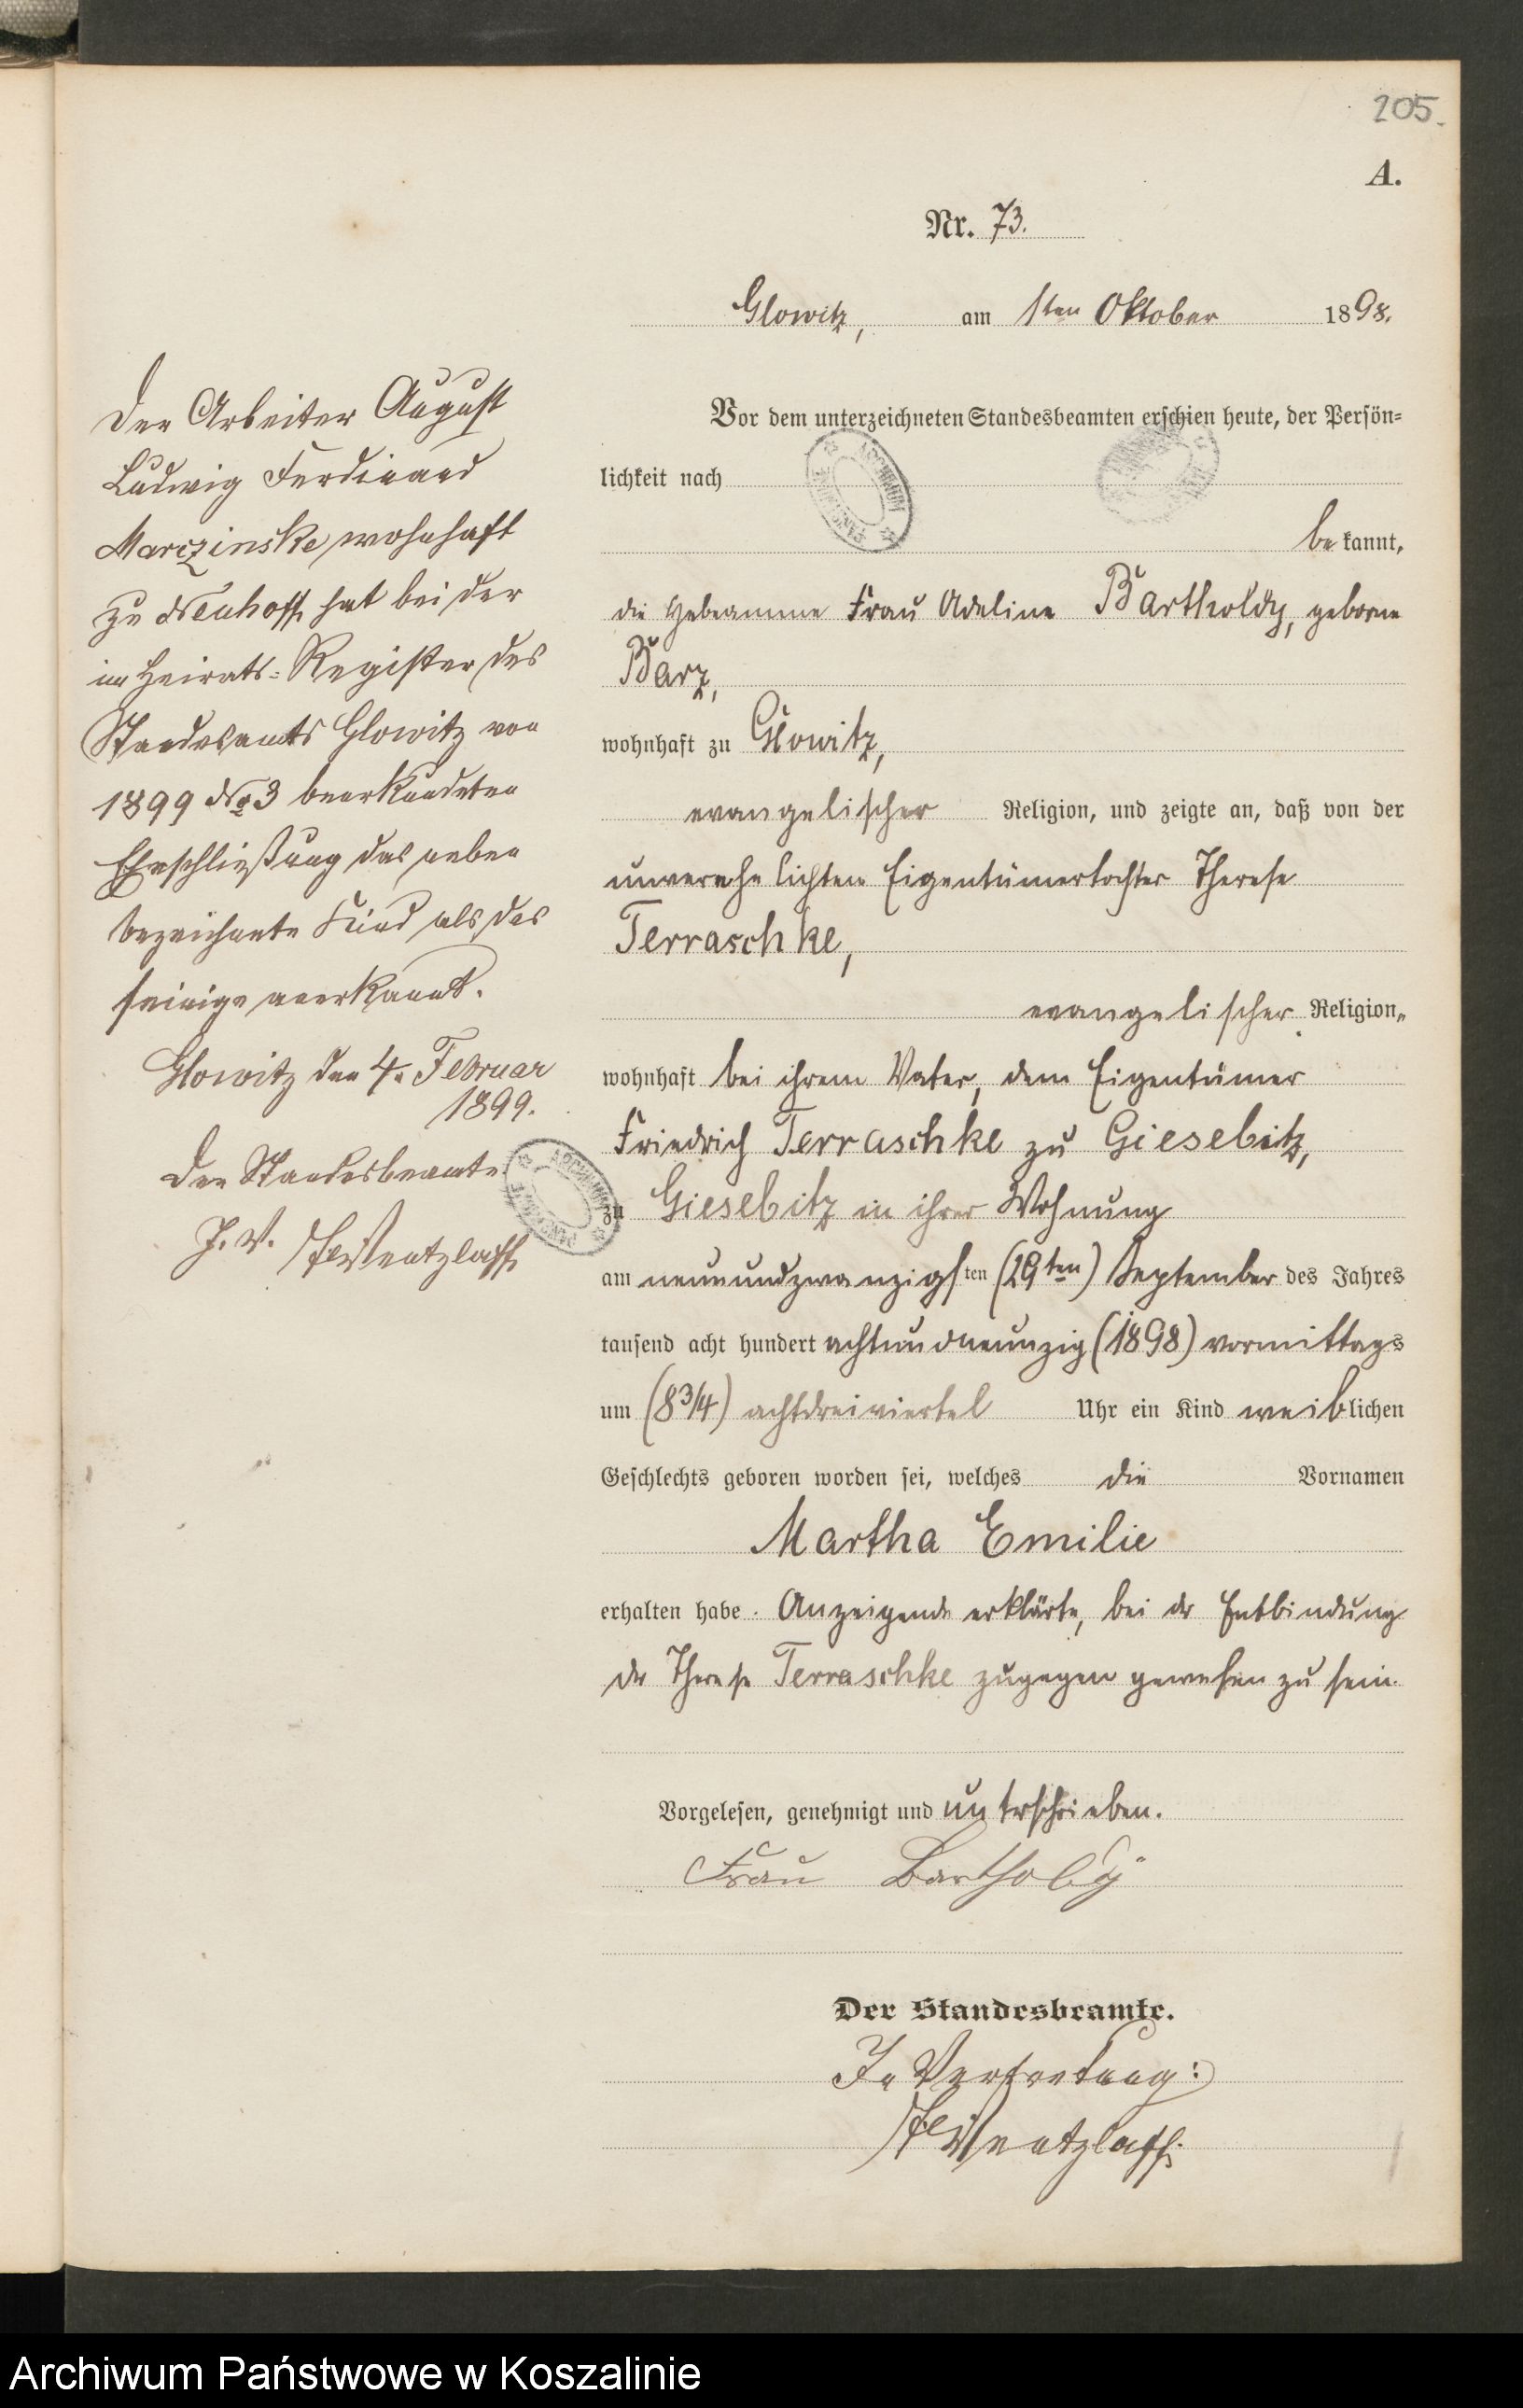 205.
A.
Nr. 73.
Glowitz, am 1ten Oktober 1898.
Vor dem unterzeichneten Standesbeamten erschien heute, der Persön=
lichkeit nach
be kannt,
die Hebeamme Frau Adeline Bartholdy, geborne
Barz,
wohnhaft zu Glowitz,
evangelischer Religion, und zeigte an, daß von der
unverehelichten Eigentümertochter Therese
Terraschke,
evangelischer Religion,
wohnhaft bei ihrem Vater, dem Eigentümer
Friedrich Terraschke zu Giesebitz,
zu Giesebitz in ihrer Wohnung
am neunundzwanzigsten (29ten) September des Jahres
tausend acht hundert achtundneunzig (1898) vormittags
um (8 3/4) achtdreiviertel Uhr ein Kind weiblichen
Geschlechts geboren worden sei, welches die Vornamen
Martha Emilie
erhalten habe. Anzeigende erklärte, bei der Entbindung
der Therese Terraschke zugegen gewesen zu sein.
Vorgelesen, genehmigt und unterschrieben.
Frau Bartholdy
Der Standesbeamte.
In Vertretung:
Wentzlaff.
Der Arbeiter August
Ludwig Ferdinand
Marczinske wohnhaft
zu Neuhoff hat bei der
im Heirats=Register des
Standesamts Glowitz von
1899 No 3 beurkundeten
Eheschließung das neben
bezeichnete Kind als das
seinige anerkannt.
Glowitz den 4. Februar
1899.
Der Standesbeamte
J. V. Wentzlaff
Archiwum Państwowe w Koszalinie